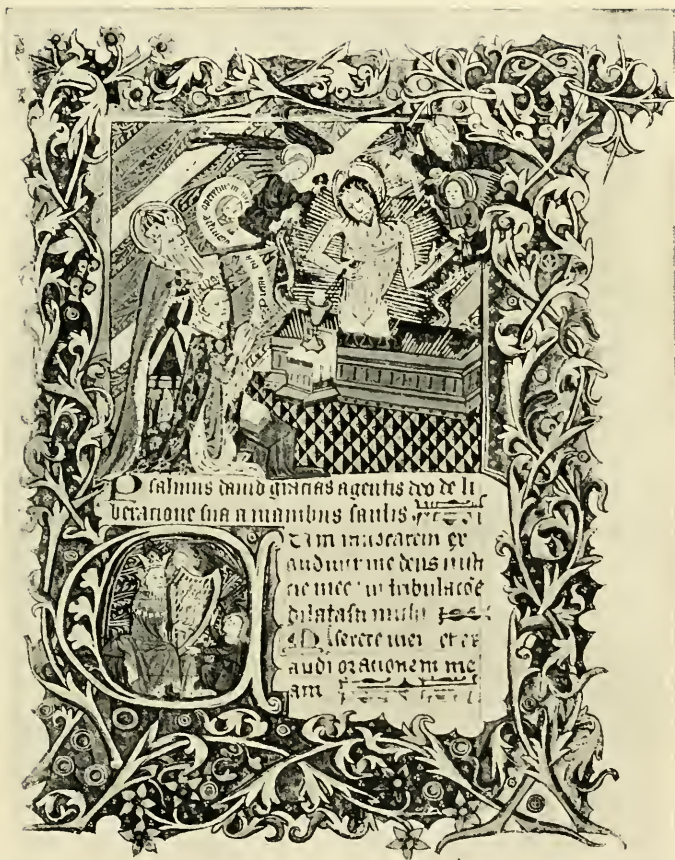 Psalmus dauid gracias agentis deo de li
beracione sua a manibus saulis
Cum inuocarem ex
audiuit me deus iusti
cie mee in tribulacoe
dilatasti michi
Miserere mei et ex
audi orationem me
am